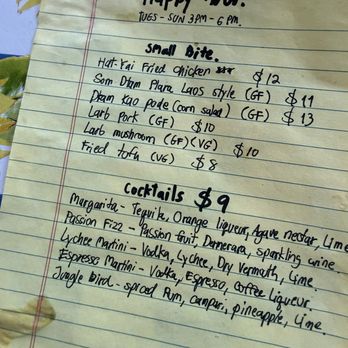 Happy Hour.
TUES - SUN 3PM - 6 PM.
Small Bite.
Hat-Yai Fried chicken *** $12
Som Dtam Plara Laos style (GF) $11
Dtam Kao pode (corn salad) (GF) $13
Larb Pork (GF) $10
Larb mushroom (GF)(VG) $10
Fried tofu (VG) $8
Cocktails $9
Margarita - Tequila, Orange liqueur, Agave nectar, Lime
Passion Fizz - Passion fruit, Demerara, sparkling wine.
Lychee Martini - Vodka, Lychee, Dry Vermouth, Lime.
Espresso Martini - Vodka, Espresso, Coffee Liqueur.
Jungle bird - spiced Rum, campari, pineapple, Lime.